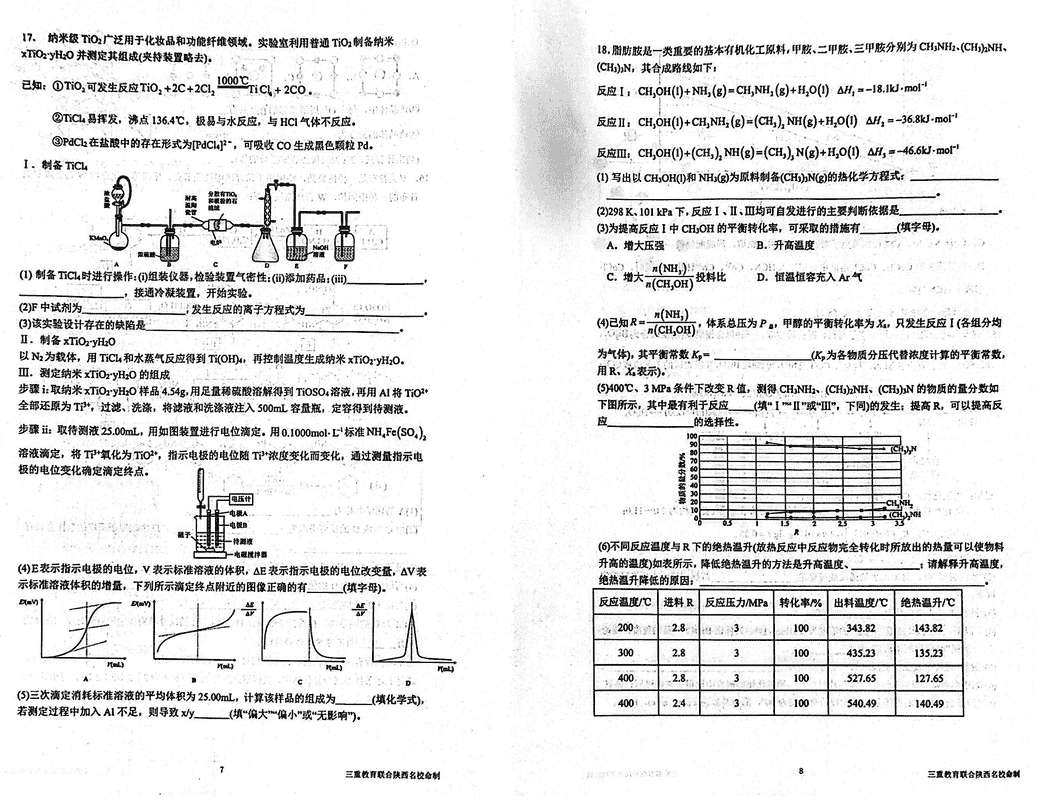 17. 纳米级TiO₂广泛用于化妆品和功能纤维领域。实验室利用普通TiO₂制备纳米
xTiO₂·yH₂O并测定其组成(夹持装置略去)。
已知: ①TiO₂可发生反应TiO₂+2C+2Cl₂ 1000℃ TiCl₄+2CO。
②TiCl₄易挥发，沸点136.4℃，极易与水反应，与HCl气体不反应。
③PdCl₂在盐酸中的存在形式为[PdCl₄]²⁻，可吸收CO生成黑色颗粒Pd。
Ⅰ. 制备TiCl₄
浓盐酸
KMnO₄
浓硫酸
耐高温陶瓷管
分散有TiO₂和碳粉的石棉绒
电炉
NaOH溶液
A B C D E F
(1) 制备TiCl₄时进行操作:(i)组装仪器,检验装置气密性;(ii)添加药品;(iii)
，接通冷凝装置，开始实验。
(2)F中试剂为 ;发生反应的离子方程式为 。
(3)该实验设计存在的缺陷是 。
Ⅱ. 制备xTiO₂·yH₂O
以N₂为载体，用TiCl₄和水蒸气反应得到Ti(OH)₄，再控制温度生成纳米xTiO₂·yH₂O。
Ⅲ. 测定纳米xTiO₂·yH₂O的组成
步骤i:取纳米xTiO₂·yH₂O样品4.54g,用足量稀硫酸溶解得到TiOSO₄溶液,再用Al将TiO²⁺
全部还原为Ti³⁺，过滤、洗涤，将滤液和洗涤液注入500mL容量瓶，定容得到待测液。
步骤ii: 取待测液25.00mL，用如图装置进行电位滴定。用0.1000mol·L⁻¹标准NH₄Fe(SO₄)₂
溶液滴定，将Ti³⁺氧化为TiO²⁺，指示电极的电位随Ti³⁺浓度变化而变化，通过测量指示电
极的电位变化确定滴定终点。
电压计
电极A
电极B
磁子
待测液
电磁搅拌器
(4)E表示指示电极的电位，V表示标准溶液的体积，ΔE表示指示电极的电位改变量，ΔV表
示标准溶液体积的增量，下列所示滴定终点附近的图像正确的有 (填字母)。
E(mV) E(mV) ΔE/ΔV ΔE/ΔV
V(mL) V(mL) V(mL) V(mL)
A B C D
(5)三次滴定消耗标准溶液的平均体积为25.00mL，计算该样品的组成为 (填化学式),
若测定过程中加入Al不足，则导致x/y (填“偏大”“偏小”或“无影响”)。
7
三重教育联合陕西名校命制
18.脂肪胺是一类重要的基本有机化工原料,甲胺、二甲胺、三甲胺分别为CH₃NH₂、(CH₃)₂NH、
(CH₃)₃N，其合成路线如下:
反应Ⅰ: CH₃OH(l)+NH₃(g)=CH₃NH₂(g)+H₂O(l) ΔH₁=-18.1kJ·mol⁻¹
反应Ⅱ: CH₃OH(l)+CH₃NH₂(g)=(CH₃)₂NH(g)+H₂O(l) ΔH₂=-36.8kJ·mol⁻¹
反应Ⅲ: CH₃OH(l)+(CH₃)₂NH(g)=(CH₃)₃N(g)+H₂O(l) ΔH₃=-46.6kJ·mol⁻¹
(1) 写出以CH₃OH(l)和NH₃(g)为原料制备(CH₃)₃N(g)的热化学方程式:
。
(2)298 K、101 kPa下,反应Ⅰ、Ⅱ、Ⅲ均可自发进行的主要判断依据是 。
(3)为提高反应Ⅰ中CH₃OH的平衡转化率，可采取的措施有 (填字母)。
A. 增大压强 B. 升高温度
C. 增大n(NH₃)/n(CH₃OH)投料比 D. 恒温恒容充入Ar气
(4)已知R=n(NH₃)/n(CH₃OH)，体系总压为P a，甲醇的平衡转化率为Xₐ，只发生反应Ⅰ(各组分均
为气体)，其平衡常数Kp= (Kp为各物质分压代替浓度计算的平衡常数，
用R、Xₐ表示)。
(5)400℃、3 MPa条件下改变R值，测得CH₃NH₂、(CH₃)₂NH、(CH₃)₃N的物质的量分数如
下图所示，其中最有利于反应 (填“Ⅰ”“Ⅱ”或“Ⅲ”，下同)的发生; 提高R，可以提高反
应 的选择性。
物质的量分数/%
100
90
80
70
60
50
40
30
20
10
0 0.5 1 1.5 2 2.5 3 3.5
R
(CH₃)₃N
CH₃NH₂
(CH₃)₂NH
(6)不同反应温度与R下的绝热温升(放热反应中反应物完全转化时所放出的热量可以使物料
升高的温度)如表所示，降低绝热温升的方法是升高温度、 ; 请解释升高温度，
绝热温升降低的原因: 。
反应温度/℃ 进料R 反应压力/MPa 转化率/% 出料温度/℃ 绝热温升/℃
200 2.8 3 100 343.82 143.82
300 2.8 3 100 435.23 135.23
400 2.8 3 100 527.65 127.65
400 2.4 3 100 540.49 140.49
8
三重教育联合陕西名校命制